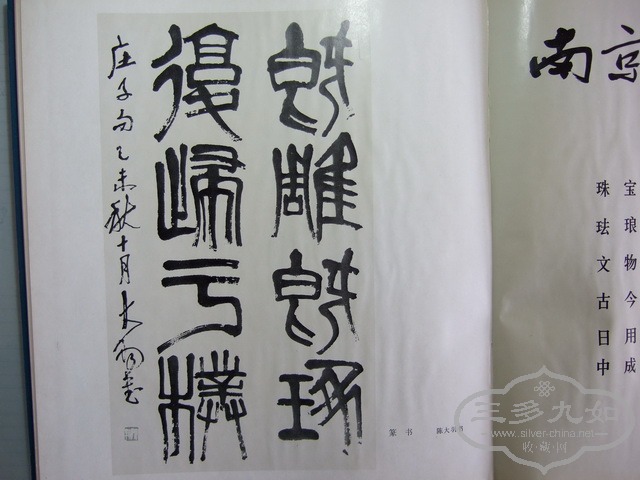 既雕既琢
復歸于樸
庄子句己未秋十月大羽書
篆书 陈大羽书
南京
珠宝
珐琅
文物
古今
日用
中成
三多九如
www.silver-china.net
收藏网